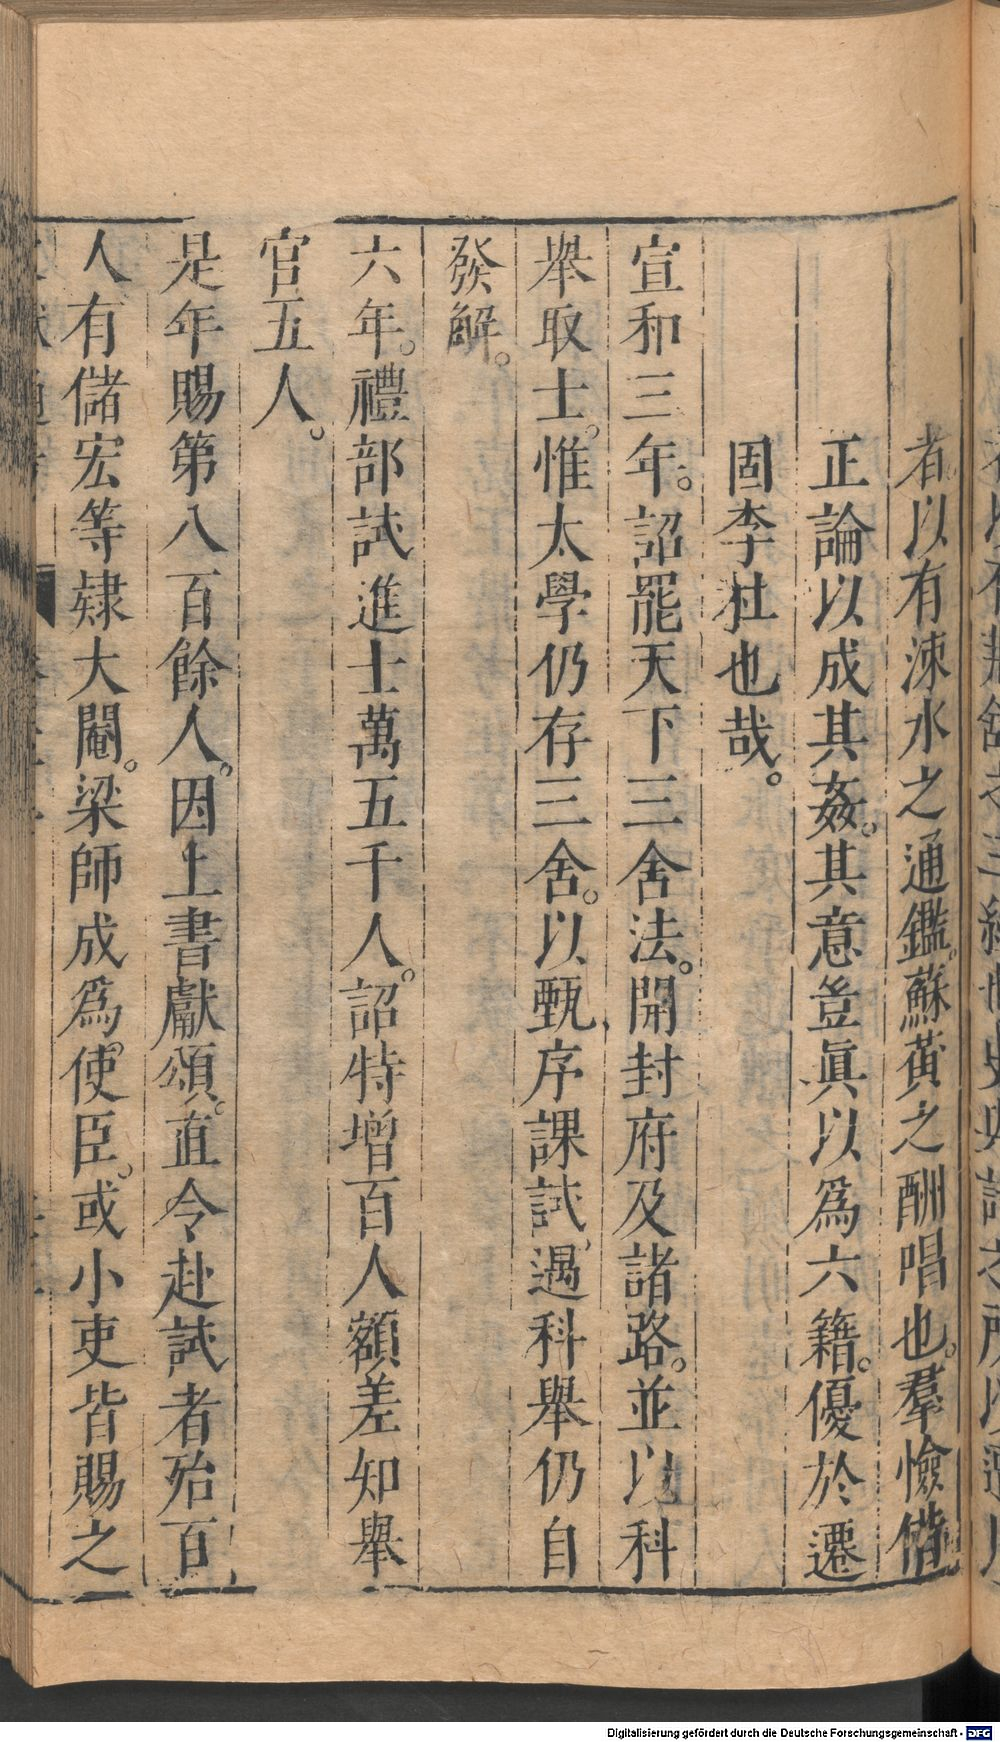 者以有涑水之通鑑。蘇黃之酬唱也。羣憸借
正論以成其姦。其意豈眞以爲六籍。優於遷
固李杜也哉。
宣和三年。詔罷天下三舍法。開封府及諸路。並以科
舉取士。惟太學仍存三舍。以甄序課試、遇科舉仍自
發解。
六年。禮部試進士萬五千人。詔特增百人額差知舉
官五人。
是年賜第八百餘人。因上書獻頌。直令赴試者殆百
人有儲宏等隸大閹。梁師成爲。使臣。或小吏皆賜之
Digitalisierung gefördert durch die Deutsche Forschungsgemeinschaft - DFG